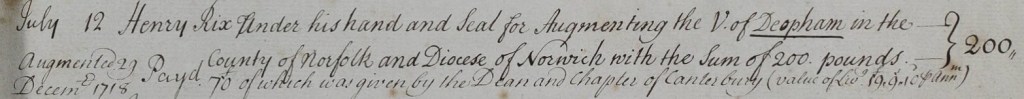 July 12 Henry Rix Under his hand and Seal for Augmenting the V. of Deopham in the
Augmented 29 Payd County of Norfolk and Diocese of Norwich with the Sum of 200 pounds. 200„
Decem.r 1718 70 of which was given by the Dean and Chapter of Canterbury (value of Liv.g